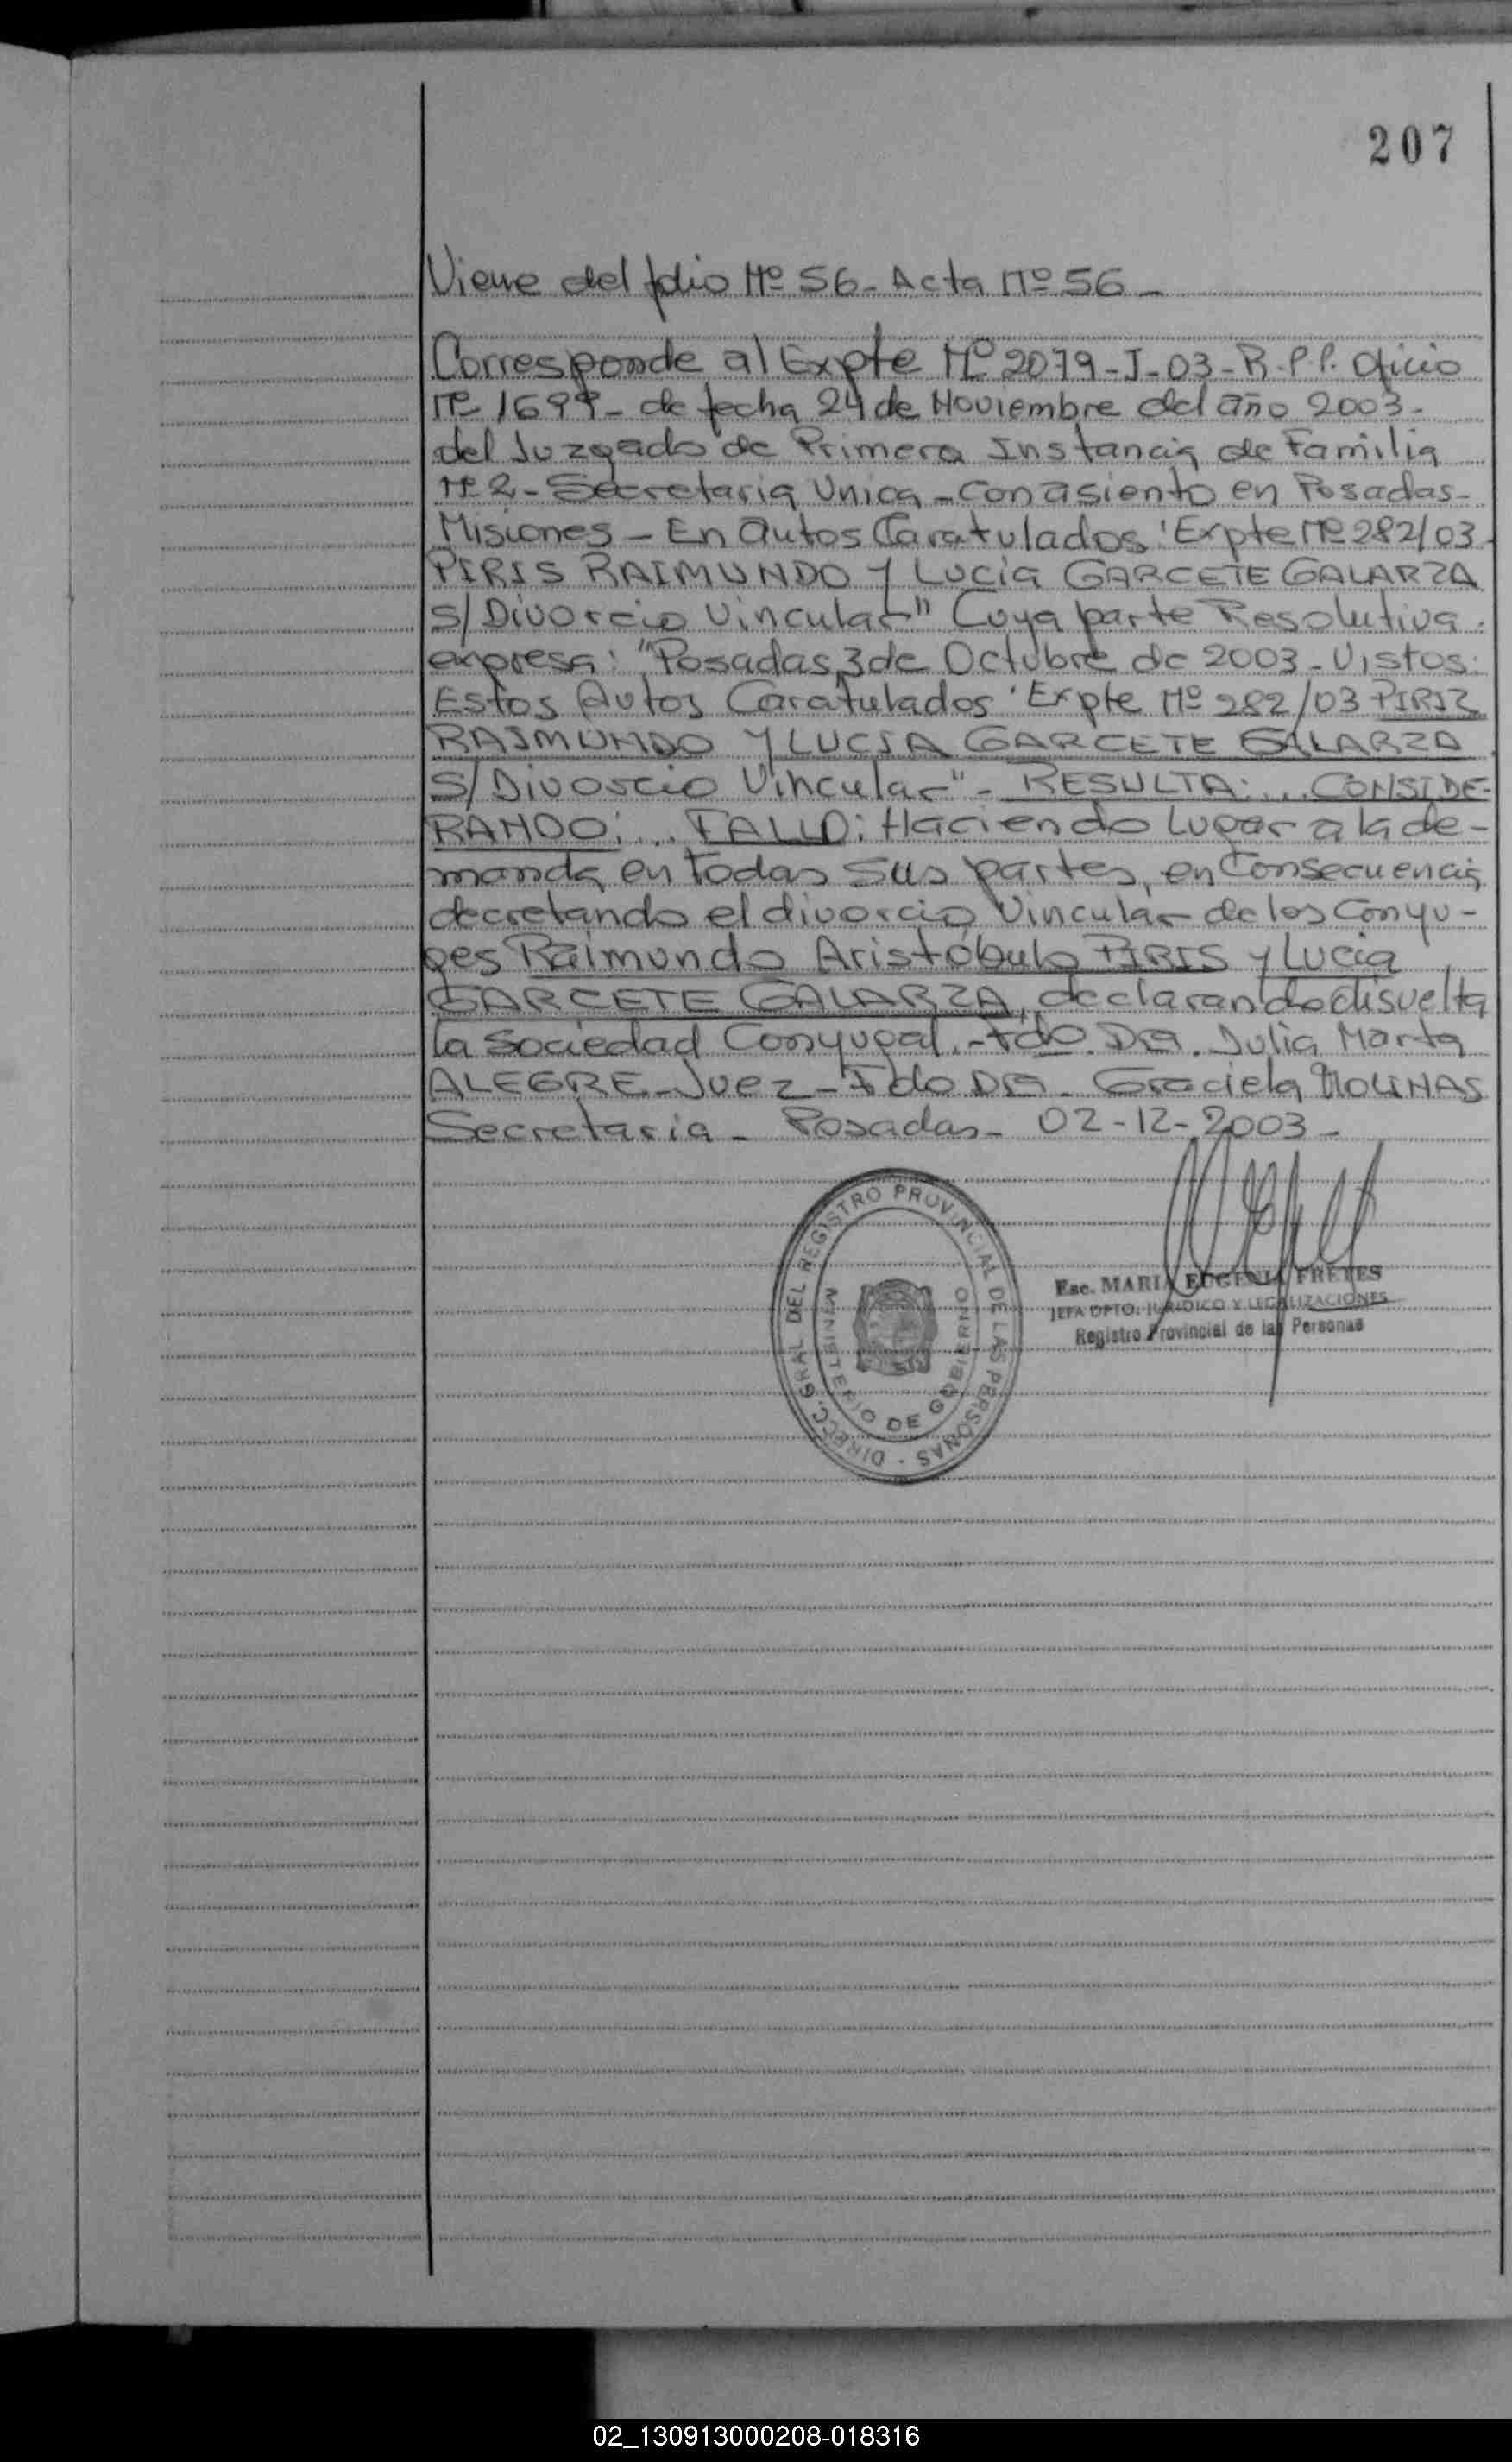 207
Viene del folio Nº 56 - Acta Nº 56 -
Corresponde al Expte Nº 2079-J-03-R.P.P. Oficio
Nº 1699 - de fecha 24 de Noviembre del año 2003-
del Juzgado de Primera Instancia de Familia
Nº 2 - Secretaria Unica - con asiento en Posadas-
Misiones - En autos Caratulados "Expte Nº 282/03
PIRIS RAIMUNDO Y Lucia GARCETE GALARZA
S/Divorcio Vincular" Cuya parte Resolutiva
expresa: "Posadas, 3 de Octubre de 2003 - Vistos:
Estos Autos Caratulados "Expte Nº 282/03 PIRIZ
RAIMUNDO Y LUCIA GARCETE GALARZA
S/Divorcio Vincular" - RESULTA: ... CONSIDE-
RANDO: ... FALLO: Haciendo lugar a la de-
manda en todas sus partes, en consecuencia
decretando el divorcio Vincular de los Conyu-
ges Raimundo Aristóbulo PIRIS y Lucia
GARCETE GALARZA, declarando disuelta
la Sociedad Conyugal. - Fdo. Dra. Julia Marta
ALEGRE - Juez - Fdo Dra. Graciela MOLINAS
Secretaria - Posadas - 02-12-2003 -
DIRECC. GRAL DEL REGISTRO PROVINCIAL DE LAS PERSONAS -
MINISTERIO DE GOBIERNO
Esc. MARIA EUGENIA FRETES
JEFA DPTO. JURIDICO Y LEGALIZACIONES
Registro Provincial de las Personas
02_130913000208-018316